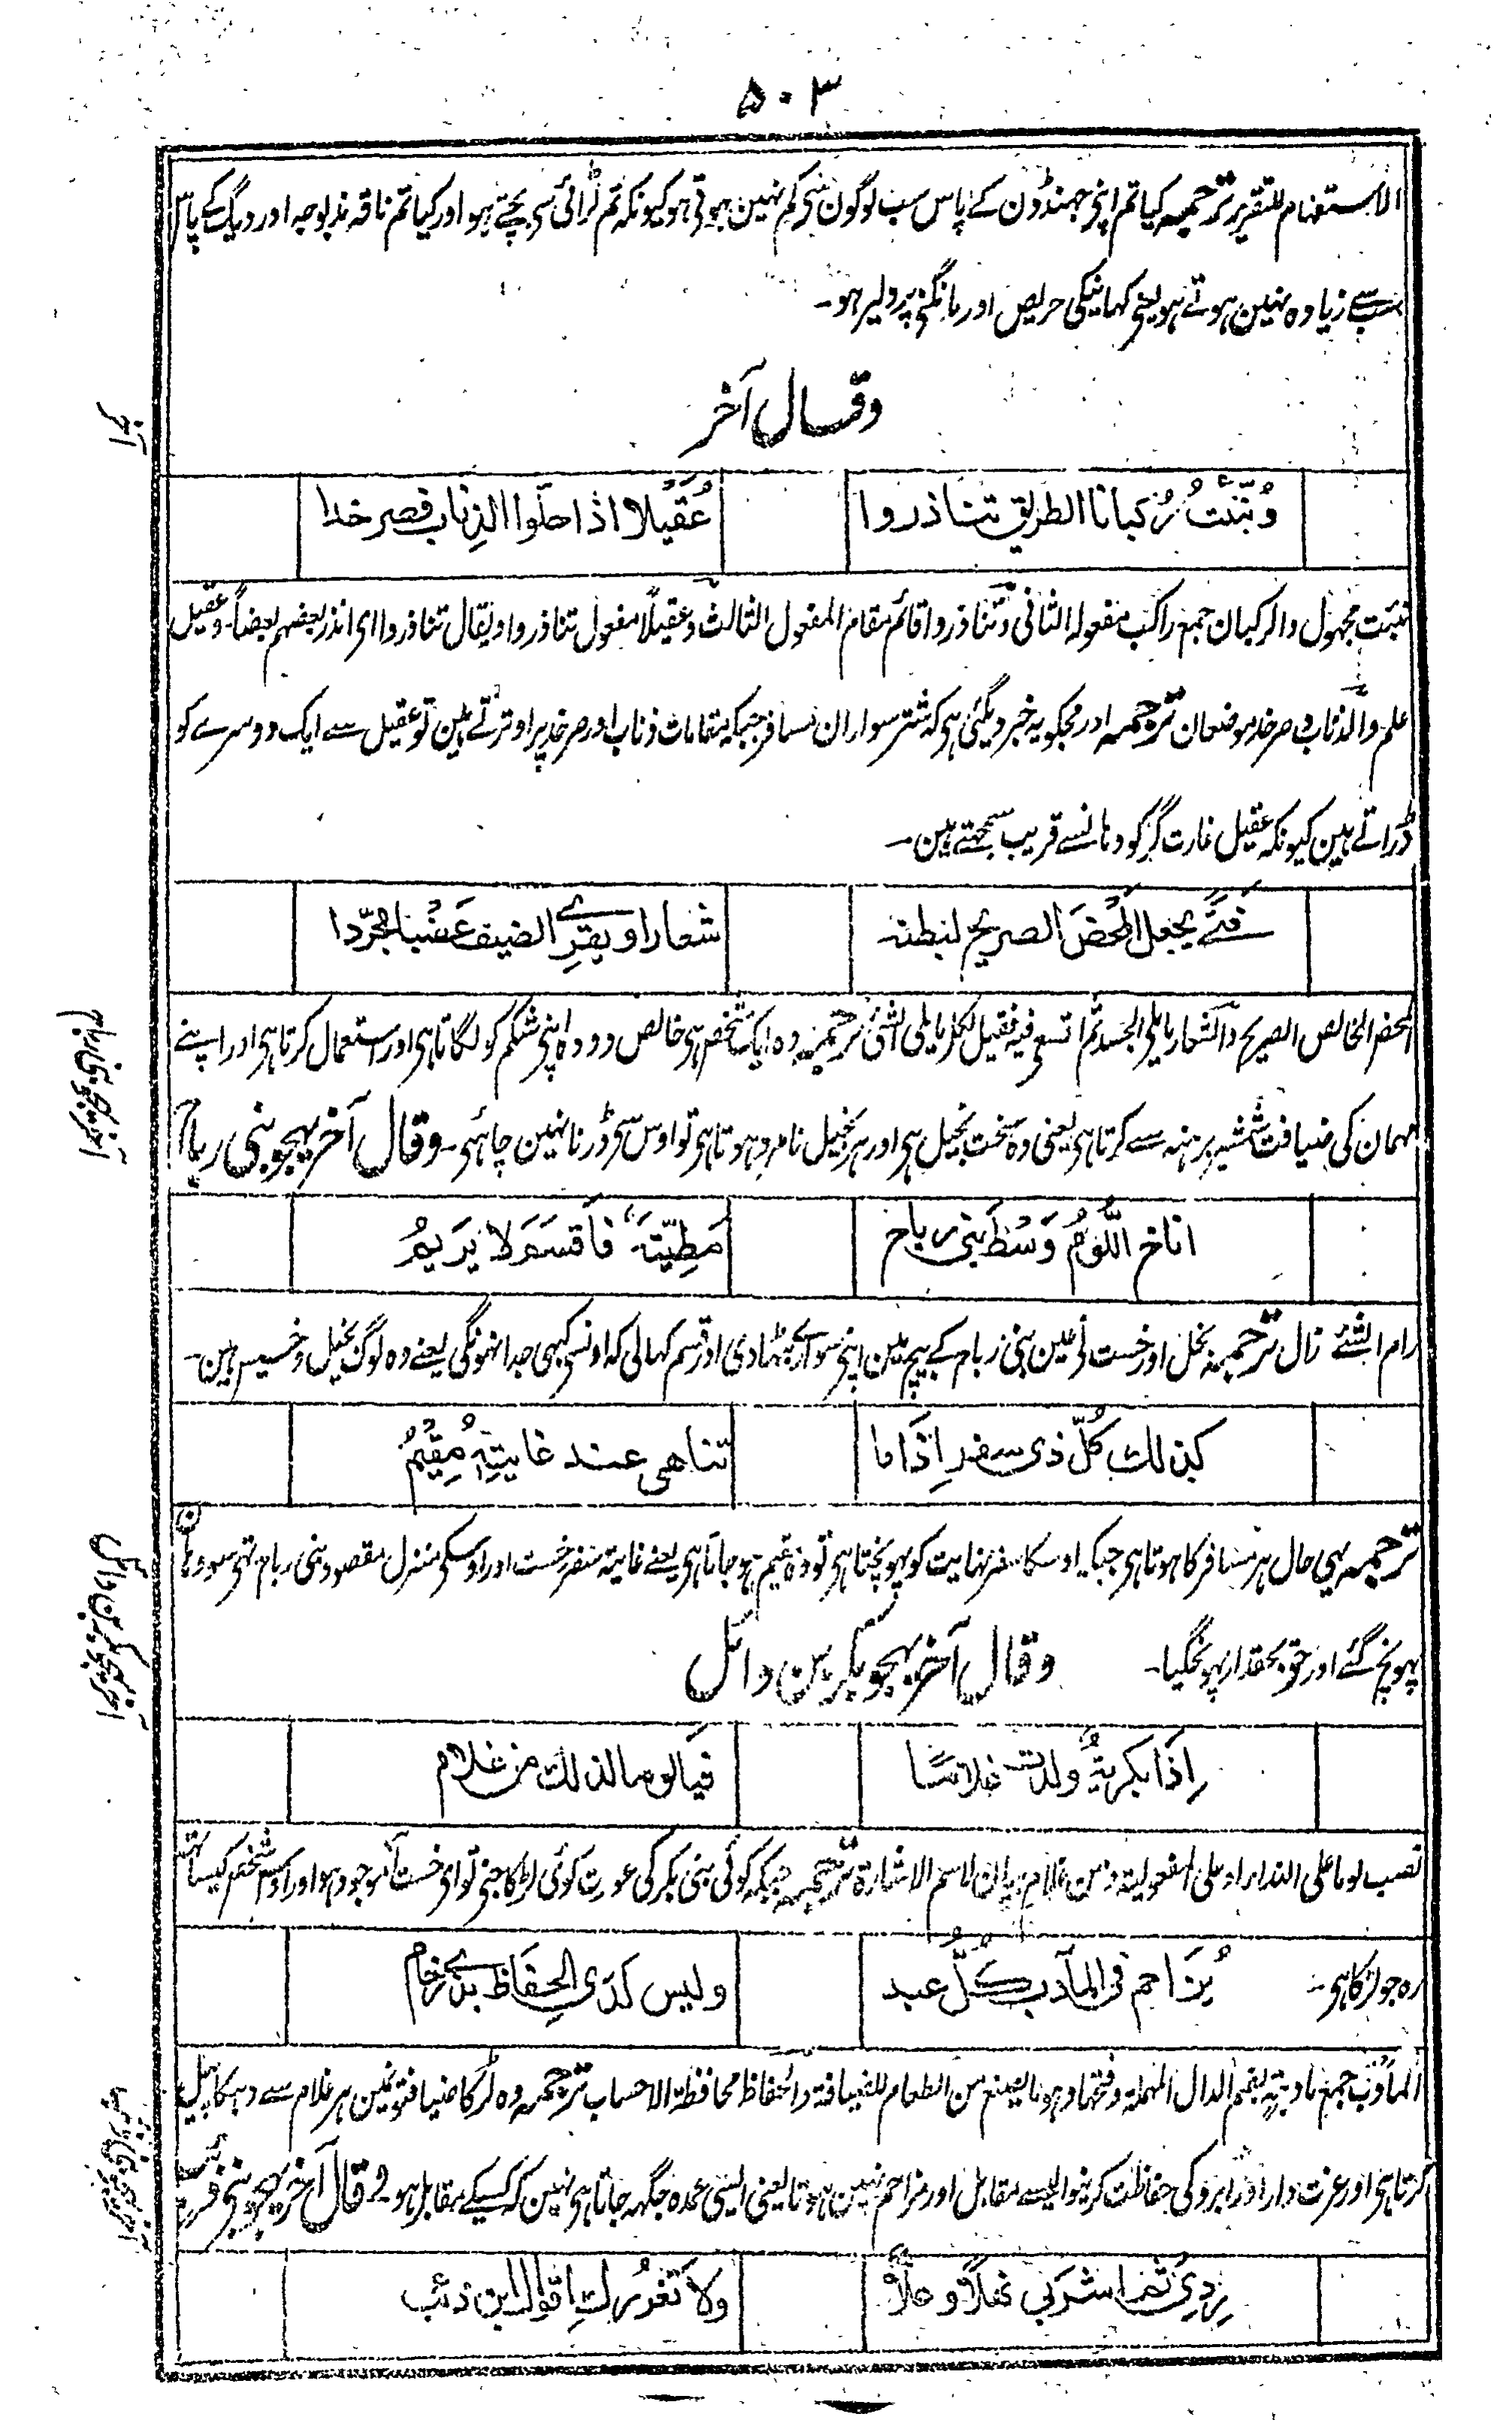 ۵۰۳
الاستفہام للتقریر ترجمہ کیا تم اپنی جہنڈون کے پاس سب لوگون سی کم نہین ہوتی ہو کیونکہ تم لڑائی سی بچتے ہو اور کیا تم ناقہ مذبوحہ اور دیگ کے پاس
سب سے زیادہ نہین ہوتے ہو یعنی کہانیکی حریص اور مانگنی پر دلیر ہو۔
وقال آخر
وُنُبِّئتُ رُكبانا الطريق تناذروا عُقَيلا اذا حلّوا الذِناب فصرخدا
نبئت مجہول والرکبان جمع راکب مفعولہ الثانی وتناذروا قائم مقام المفعول الثالث وعقیلاً مفعول تناذروا ویقال تناذروا ای انذر بعضہم بعضاً۔ وعقیل
علم والذناب وصرخد موضعان ترجمہ اور مجکو یہ خبر دیگئی ہی کہ شتر سواران مسافر جبکہ بمقامات ذناب اور صرخد پر اوترتے ہین تو عقیل سے ایک دوسرے کو
ڈراتے ہین کیونکہ عقیل غارت گر کو وہانسے قریب سمجھتے ہین۔
فتًے يجعل المحضَ الصريح لبطنه شعارا ويقرِے الضيف عَضْبا مجرّدا
المحض الخالص الصریح والشعار ما یلی الجسد ثم اتسعی فیہ فقیل لکل ما یلی الشئ ترجمہ وہ ایک شخص ہی خالص دودہ اپنی شکم کو لگاتا ہی اور استعمال کرتا ہی اور اپنے
مہمان کی ضیافت شمشیر برہنہ سے کرتا ہی یعنی وہ سخت بخیل ہی اور ہر بخیل نامرد ہوتا ہی تو اوس سی ڈرنا نہین چاہئی۔ وقال آخر یہجو بنی ریاح
اناخ اللُّؤمُ وَسْطَ بنى رياح مَطِيّتَه فاَقسَمَ لا يَرِيمُ
رام الشئے زال ترجمہ بخل اور خست نی عین بنی ریاح کے بیچ مین اپنی سواری بٹہادی اور قسم کہالی کہ اونسی کبہی جدا نہونگی یعنے وہ لوگ بخیل وخسیس ہین۔
كذلك كُلّ ذى سفر اِذَا ما تناهى عند غايتِهِ مُقِيْمُ
ترجمہ یہی حال ہر مسافر کا ہوتا ہی جبکہ اوسکا سفر نہایت کو پہونچتا ہی تو وہ مقیم ہو جاتا ہی یعنے غایۃ سفر خست اور اوسکی منزل مقصود بنی ریاح تہی سو وہان
پہونچ گئے اور حق بحقدار پہونچگیا۔ وقال آخر یہجو بکر بن وائل
اِذَا بكريةٌ ولدت غلامًا فيالوما لذلك من غلام
نصب لوما علی النداء او علی المفعولیۃ ومن غلام بیان لاسم الاشارۃ ترجمہ جبکہ کوئی بنی بکر کی عورت کوئی لڑکا جنی تو ای خست آ موجود ہو اور اوس شخص کیساتہ
رہ جو لڑکا ہی۔ يُزَاحم فى المآدب كُلَّ عبد وليس لدَى الحِفَاظ بذے زحام
المآدب جمع مادبۃ بضم الدال المہملۃ وفتحہا وہو ما یصنع من الطعام للضیافۃ والحفاظ محافظۃ الاحساب ترجمہ وہ لڑکا ضیافتونمین ہر غلام سے دہکا پیل
کرتا ہی اور عزت دار اور ابرو کی حفاظت کرنیوالیسے مقابل اور مزاحم نہین ہوتا یعنی ایسی عمدہ جگہہ جاتا ہی نہین کہ کسیکے مقابل ہو وقال آخر یہجو بنی
رِدِى ثم اشربى نهلًا وعلًّا ولا تَغْرُرك اقوال ابن ذئب